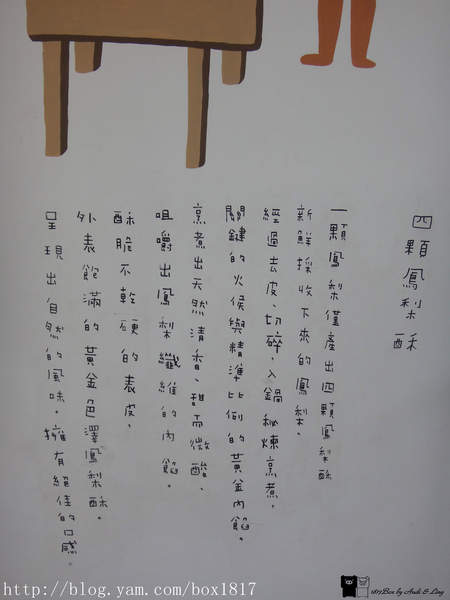 四顆鳳梨酥
一顆鳳梨僅產出四顆鳳梨酥
新鮮採收下來的鳳梨。
經過去皮、切碎、入鍋秘煉烹煮，
關鍵的火候與精準比例的黃金內餡。
烹煮出天然清香、甜而微酸、
咀嚼出鳳梨纖維的內餡。
酥脆不乾硬的表皮，
外表飽滿的黃金色澤鳳梨酥。
呈現出自然的風味。擁有絕佳的口感。
1817Box by Andi & Ling
http://blog.yam.com/box1817